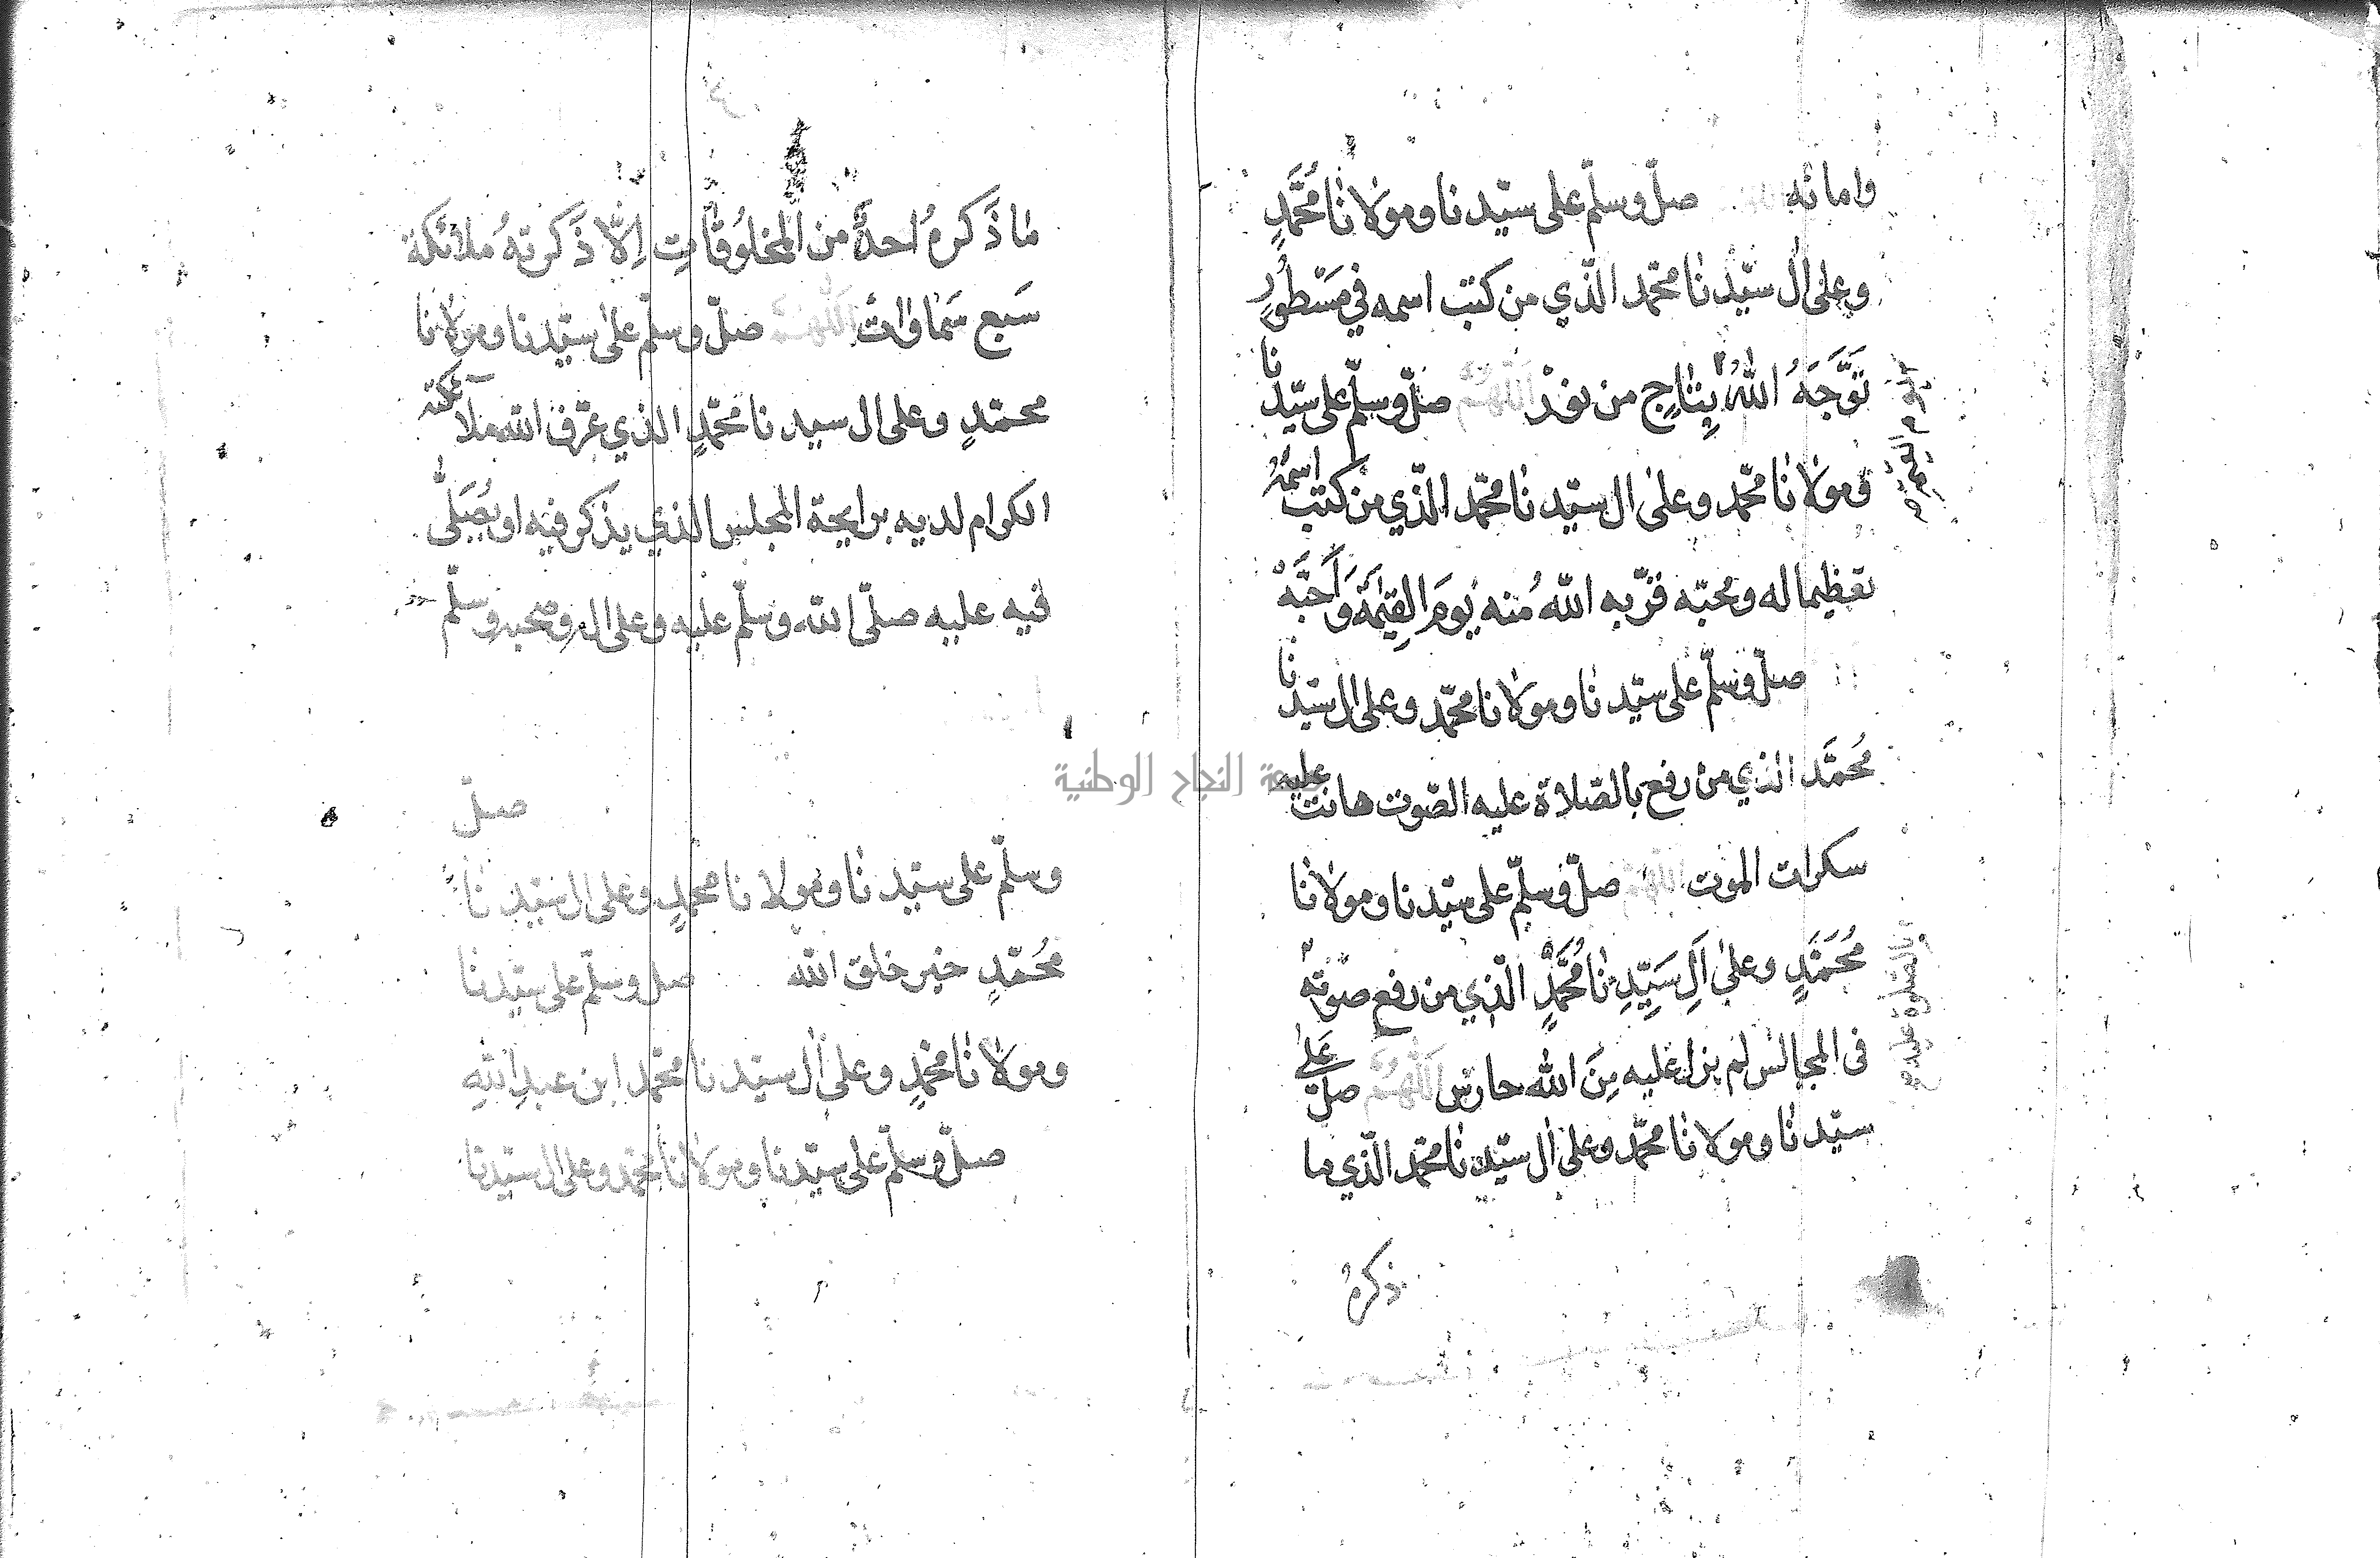 وامانه صلّ وسلّم على سيّدنا ومولانا مُحَمَّدٍ
وعلى ال سيّدنا محمّد الذّي من كتب اسمه في مَسْطُورٍ
تَوَّجَهُ اللهُ بِتَاجٍ من نور اَللّٰهُمَّ صلّ وسلّم على سيّدنا
ومولانا محمّد وعلى ال سيّدنا محمّد الذّي من كتب اسمهُ
تعظيما له ومحبّه قرّبه اللهُ منه يومَ القِيٰمَة وَأَحَبَّهُ
صلّ وسلّم على سيّدنا ومولانا محمّد وعلى ال سيّدنا
مُحمَّد الذي من رفع بالصّلاة عليه الصّوت هانت عليه
سكرات الموت اللّهمّ صلّ وسلّم على سيّدنا ومولانا
مُحَمَّدٍ وعلى اَلِ سَيِّدِنَا مُحَمَّدٍ الّذي من رفع صوته
في المجالس لم يزل عليه مِنَ الله حارس اَللّٰهُمَّ صلّ عَلى
سيّدنا ومولانا محمّد وعلى ال سيّدنا محمّد الّذي ما
ذكرهُ
يوم القيمة
بالصلوة عليه
ما ذَكرهُ احدٌ من المخلُوقَاتِ اِلّا ذَكرتهُ ملائكة
سَبع سَماوات اَللّٰهُمَّ صلّ وسلّم على سيّدنا ومولانا
محمّدٍ وعلى ال سيدنا محمّدٍ الذي عرّف الله ملائكته
الكرام لديه برايحة المجلس الذي يذكر فيه او يُصَلَّى
فيه عليه صلّى الله وسلّم عليه وعلى اله وصحبه وسلّم
صلّ
وسلّم على سيّدنا ومولانا محمدٍ وعلى ال سيّدنا
مُحمّدٍ خير خلق الله صلّ وسلّم على سيّدنا
ومولانا محمّدٍ وعلى ال سيّدنا محمّد ابن عبدِ اللهِ
صلّ وسلّم على سيّدنا ومولانا محمّد وعلى ال سيّدنا
جامعة النجاح الوطنية